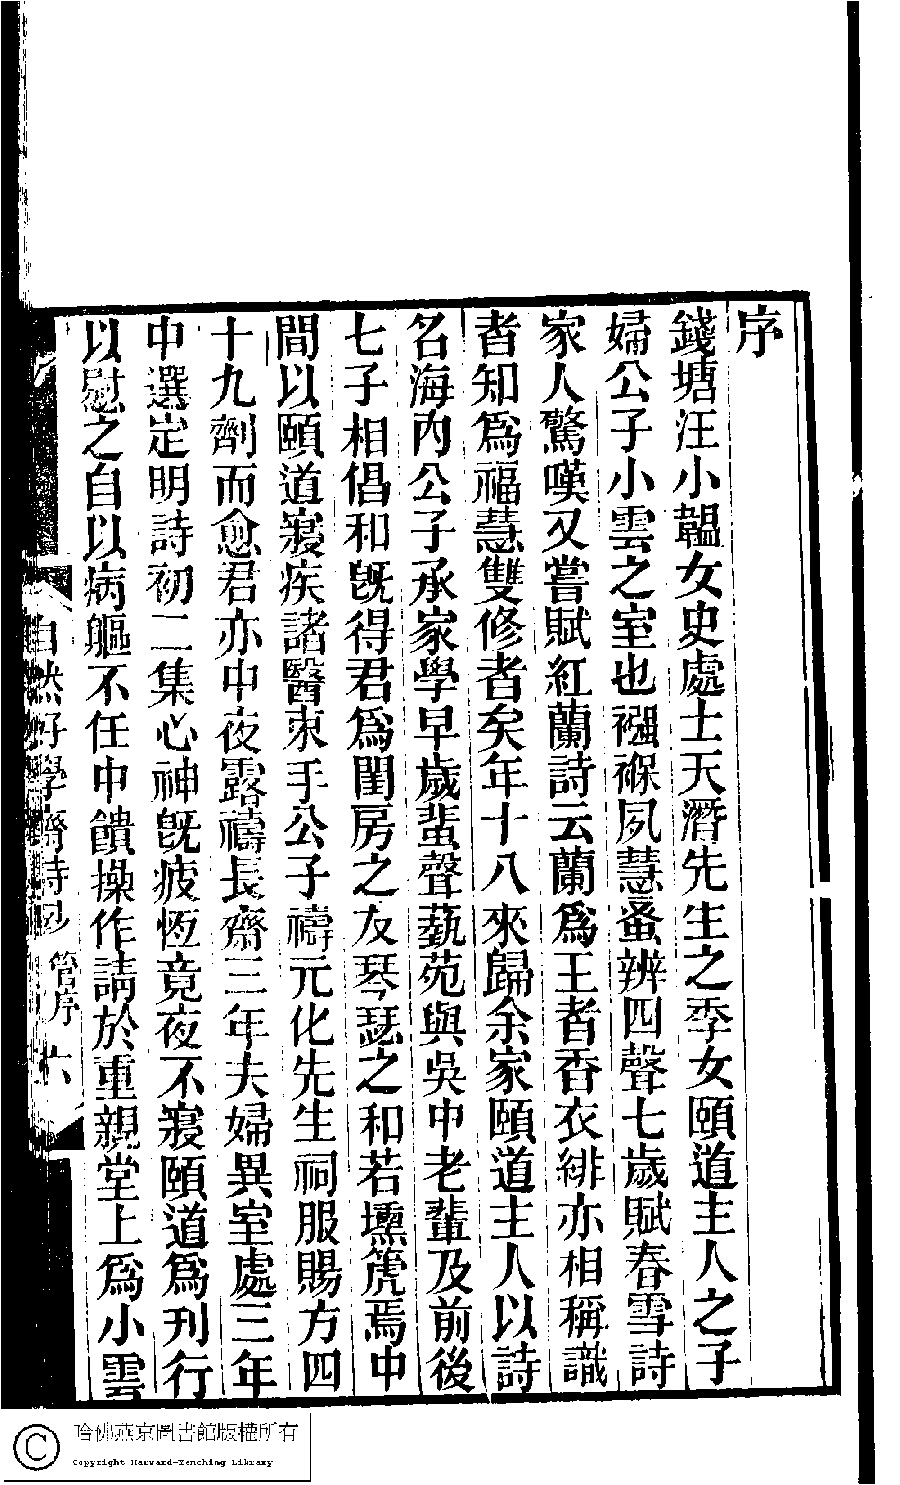 序
錢塘汪小韞女史處士天潛先生之季女頤道主人之子
婦公子小雲之室也襁褓夙慧蚤辨四聲七歲賦春雪詩
家人驚嘆又嘗賦紅蘭詩云蘭爲王者香衣緋亦相稱識
者知爲福慧雙修者矣年十八來歸余家頤道主人以詩
名海內公子承家學早歲蜚聲藝苑與吳中老輩及前後
七子相倡和旣得君爲閨房之友琴瑟之和若壎箎焉中
間以頤道寢疾諸醫束手公子禱元化先生祠服賜方四
十九劑而愈君亦中夜露禱長齋三年夫婦異室處三年
中選定明詩初二集心神旣疲恆竟夜不寢頤道爲刊行
以慰之自以病軀不任中饋操作請於重親堂上爲小雲
自然好學齋詩鈔 管序 六
哈佛燕京圖書館版權所有
Copyright Harvard-Yenching Library